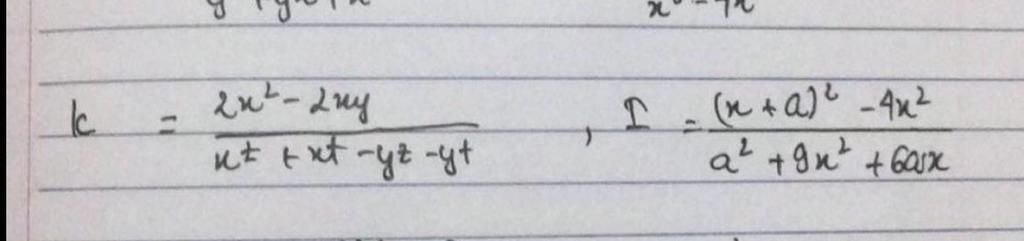 k = \frac{2x^2 - 2xy}{xz + xt - yz - yt} , I = \frac{(x + a)^2 - 4x^2}{a^2 + 9x^2 + 6ax}